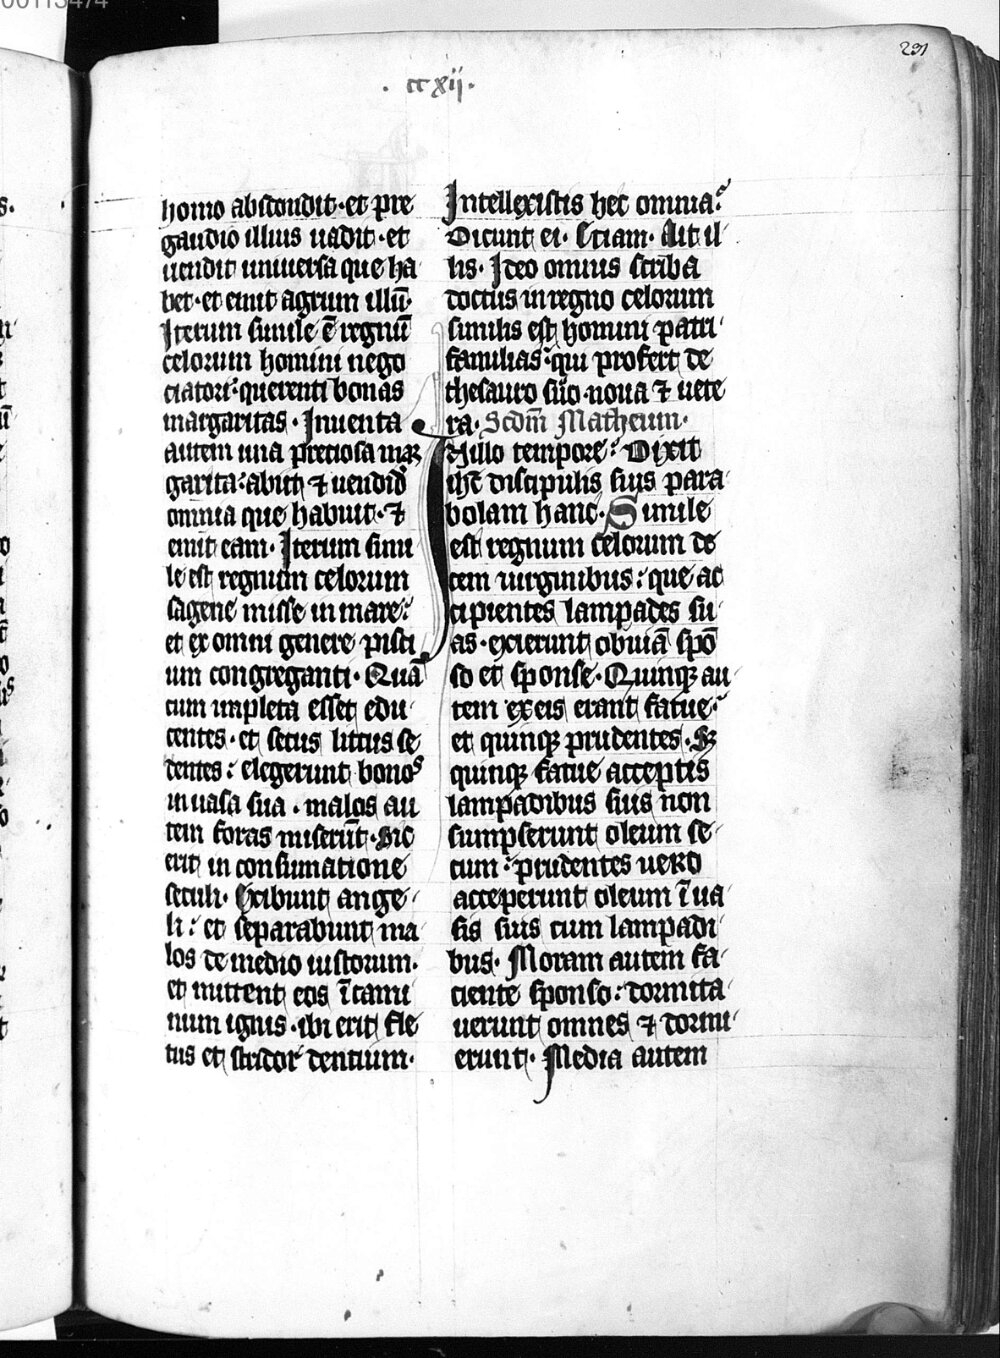 231
. ccxij.
homo abscondit · et pre
gaudio illius uadit · et
uendit uniuersa que ha
bet · et emit agrum illū ·
Iterum simile ē regnū
celorum homini nego
ciatori : querenti bonas
margaritas · Inuenta
autem una preciosa mar
garita : abiit ⁊ uendid
omnia que habuit · ⁊
emit eam · Iterum simi
le est regnum celorum
sagene misse in mare :
et ex omni genere pisci
um congreganti · Quā
cum impleta esset edu
centes · et secus littus se
dentes : elegerunt bonos
in uasa sua · malos au
tem foras miserūt · Sic
erit in consumatione
seculi · Exibunt ange
li : et separabunt ma
los de medio iustorum ·
et mittent eos ī cami
num ignis · ibi erit fle
tus et stridor dentium ·
Intellexistis hec omnia :
Dicunt ei · Eciam · Ait il
lis · Ideo omnis scriba
doctus in regno celorum
similis est homini patri
familias : qui profert de
thesauro suo · noua ⁊ uete
ra · Scdm̄ Matheum ·
In illo tempore : Dixit
ihc̄ discipulis suis para
bolam hanc · Simile
est regnum celorum de
cem uirginibus : que ac
cipientes lampades su
as · exierunt obuiā spō
so et sponse · Quinqꝫ au
tem ex eis erant fatue :
et quinqꝫ prudentes · Sꝫ
quinqꝫ fatue acceptis
lampadibus suis non
sumpserunt oleum se
cum : prudentes uero
acceperunt oleum ī ua
sis suis cum lampadi
bus · Moram autem fa
ciente sponso : dormita
uerunt omnes ⁊ dormi
erunt · Media autem